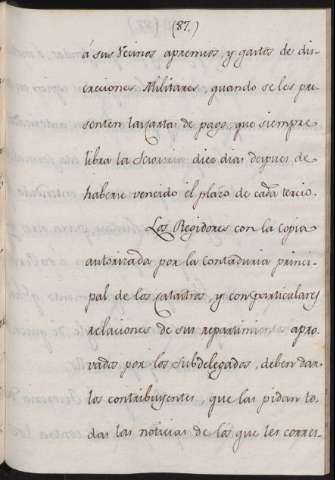 (87.)
á sus Vecinos apremios, y gastos de dis-
creciones Militares, quando se les pre
senten la carta de pago, que siempre
libra la Thesoreria diez dias despues de
haberse vencido el plazo de cada tercio.
Los Regidores con la copia
autorizada por la Contaduria princi-
pal de los catastros, y con particulares
relaciones de sus repartimientos apro-
vados por los Subdelegados, deben dar
los contribuyentes, que las pidan to-
das las noticias de los que les corres-